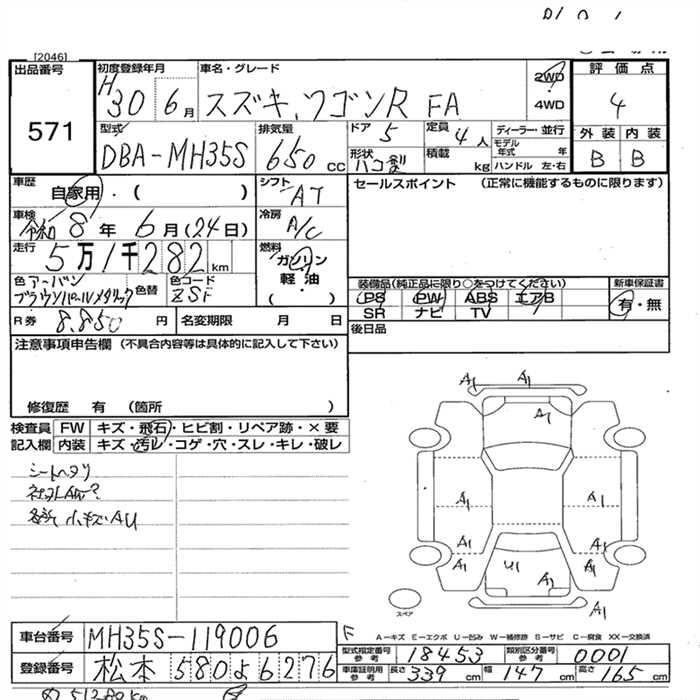 [2046]
出品番号 初度登録年月 車名・グレード 2WD 評価点
571 H30 6月 スズキ、ワゴンR FA 4WD 4
型式 排気量 ドア 5 定員 4人 ディーラー・並行 外装 内装
DBA-MH35S 650cc 形状 ハコ型 積載 kg モデル年式 年 ハンドル 左・右 B B
車歴 自家用・( ) シフト AT セールスポイント (正常に機能するものに限ります)
車検 令和8年6月(24日) 冷房 A/C
走行 5万1千282km 燃料 ガソリン・軽油・( )
色 アーバンブラウンパールメタリック 色替 色コード ZSF 装備品(純正品に限り○をつけてください) 新車保証書
PS PW ABS エアB 有・無
SR ナビ TV
R券 8.850円 名変期限 月 日 後日品
注意事項申告欄 (不具合内容等は具体的に記入して下さい)
修復歴 有 (箇所 )
検査員 FW キズ・飛石・ヒビ割・リペア跡・×要
記入欄 内装 キズ・汚レ・コゲ・穴・スレ・キレ・破レ
シートヘタリ
小キズ・AU
A1 A1
A1
A1 A1
A1 A1
A1 U1 A2 A1
A1
スペア
A−キズ E−エクボ U−凹み W−補修跡 S−サビ C−腐食 XX−交換済
車台番号 MH35S-119006 型式指定番号参考 18453 類別区分番号参考 0001
登録番号 松本 580 よ 6276 車庫証明用参考 長さ 339cm 幅 147cm 高さ 165cm